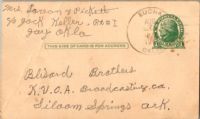 Mrs. Lawson Pickett
c/o Jack Keller. Rt #1
Jay Okla
THIS SIDE OF CARD IS FOR ADDRESS
Blisard Brothers
K.V.O.A. Broadcasting Co.
Siloam Springs Ark.